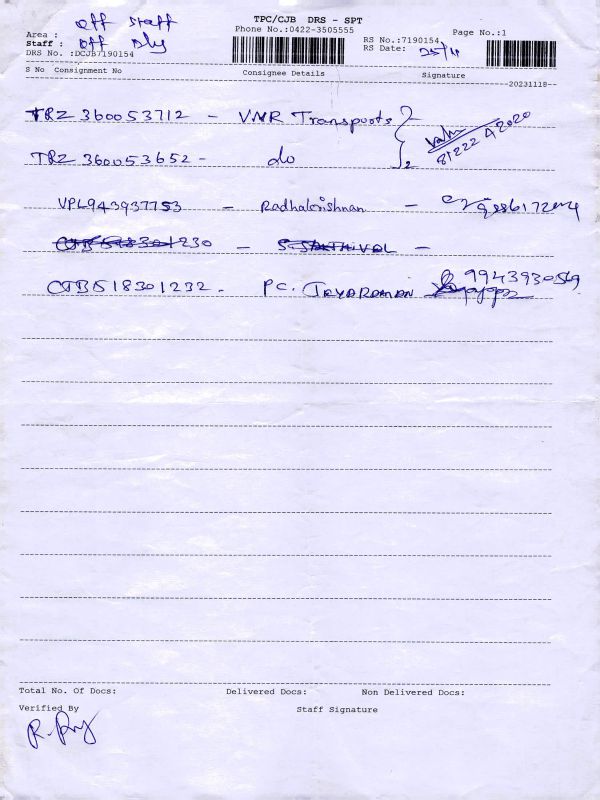 TPC/CJB DRS - SPT
Phone No.:0422-3505555
Page No.:1
Area : Off Staff
Staff : Off Dly
DRS No. :DCJB7190154
RS No.:7190154
RS Date: 25/4
S No Consignment No Consignee Details Signature
20231118
TRZ 360053712 - VNR Transports
TRZ 360053652 - do 2
81222 42020
VPL943937753 - Radhakrishnan -
230 - -
CJB518301232 - PC. JAYARAMAN 9943930569
Total No. Of Docs: Delivered Docs: Non Delivered Docs:
Verified By Staff Signature